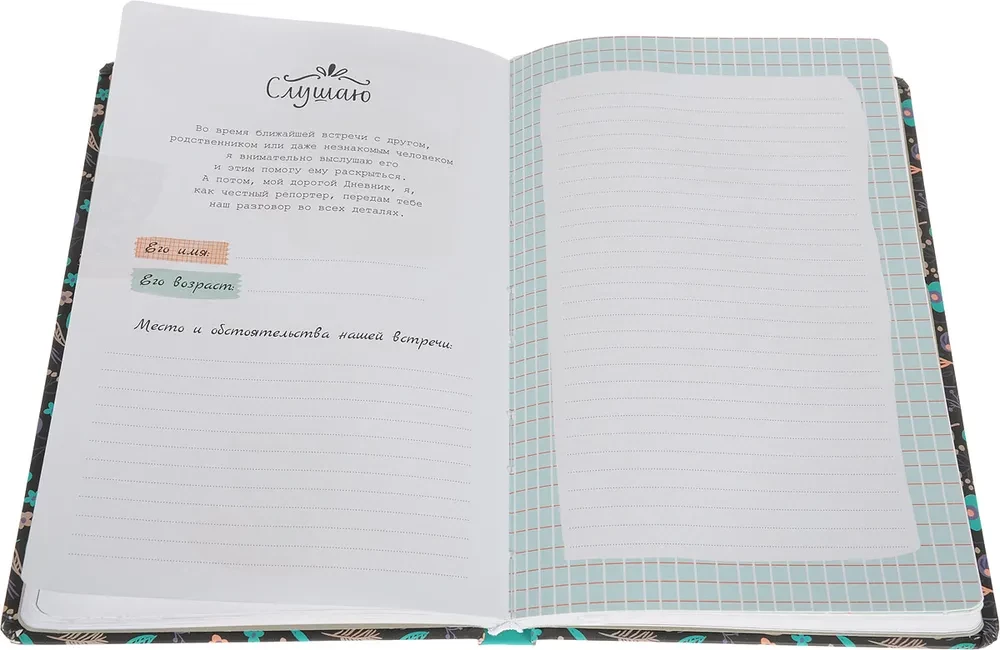 Слушаю
Во время ближайшей встречи с другом,
родственником или даже незнакомым человеком
я внимательно выслушаю его
и этим помогу ему раскрыться.
А потом, мой дорогой Дневник, я,
как честный репортер, передам тебе
наш разговор во всех деталях.
Его имя:
Его возраст:
Место и обстоятельства нашей встречи: